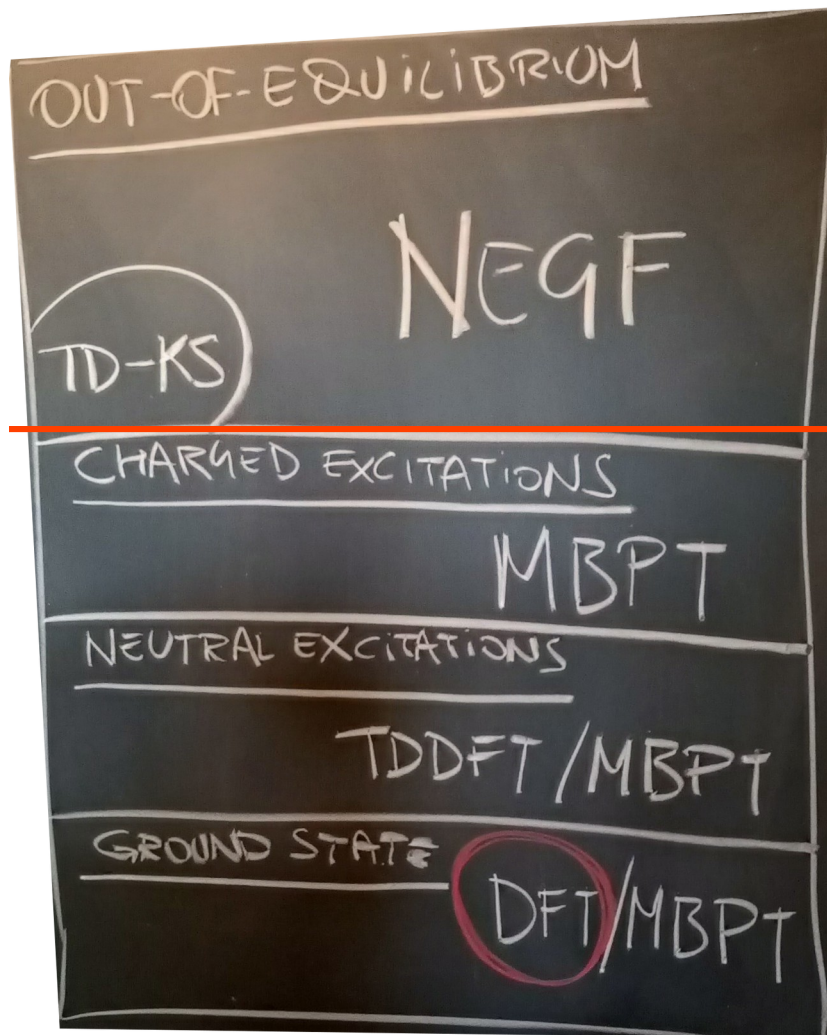 OUT-OF-EQUILIBRIUM
NEGF
TD-KS
CHARGED EXCITATIONS
MBPT
NEUTRAL EXCITATIONS
TDDFT/MBPT
GROUND STATE
DFT/MBPT